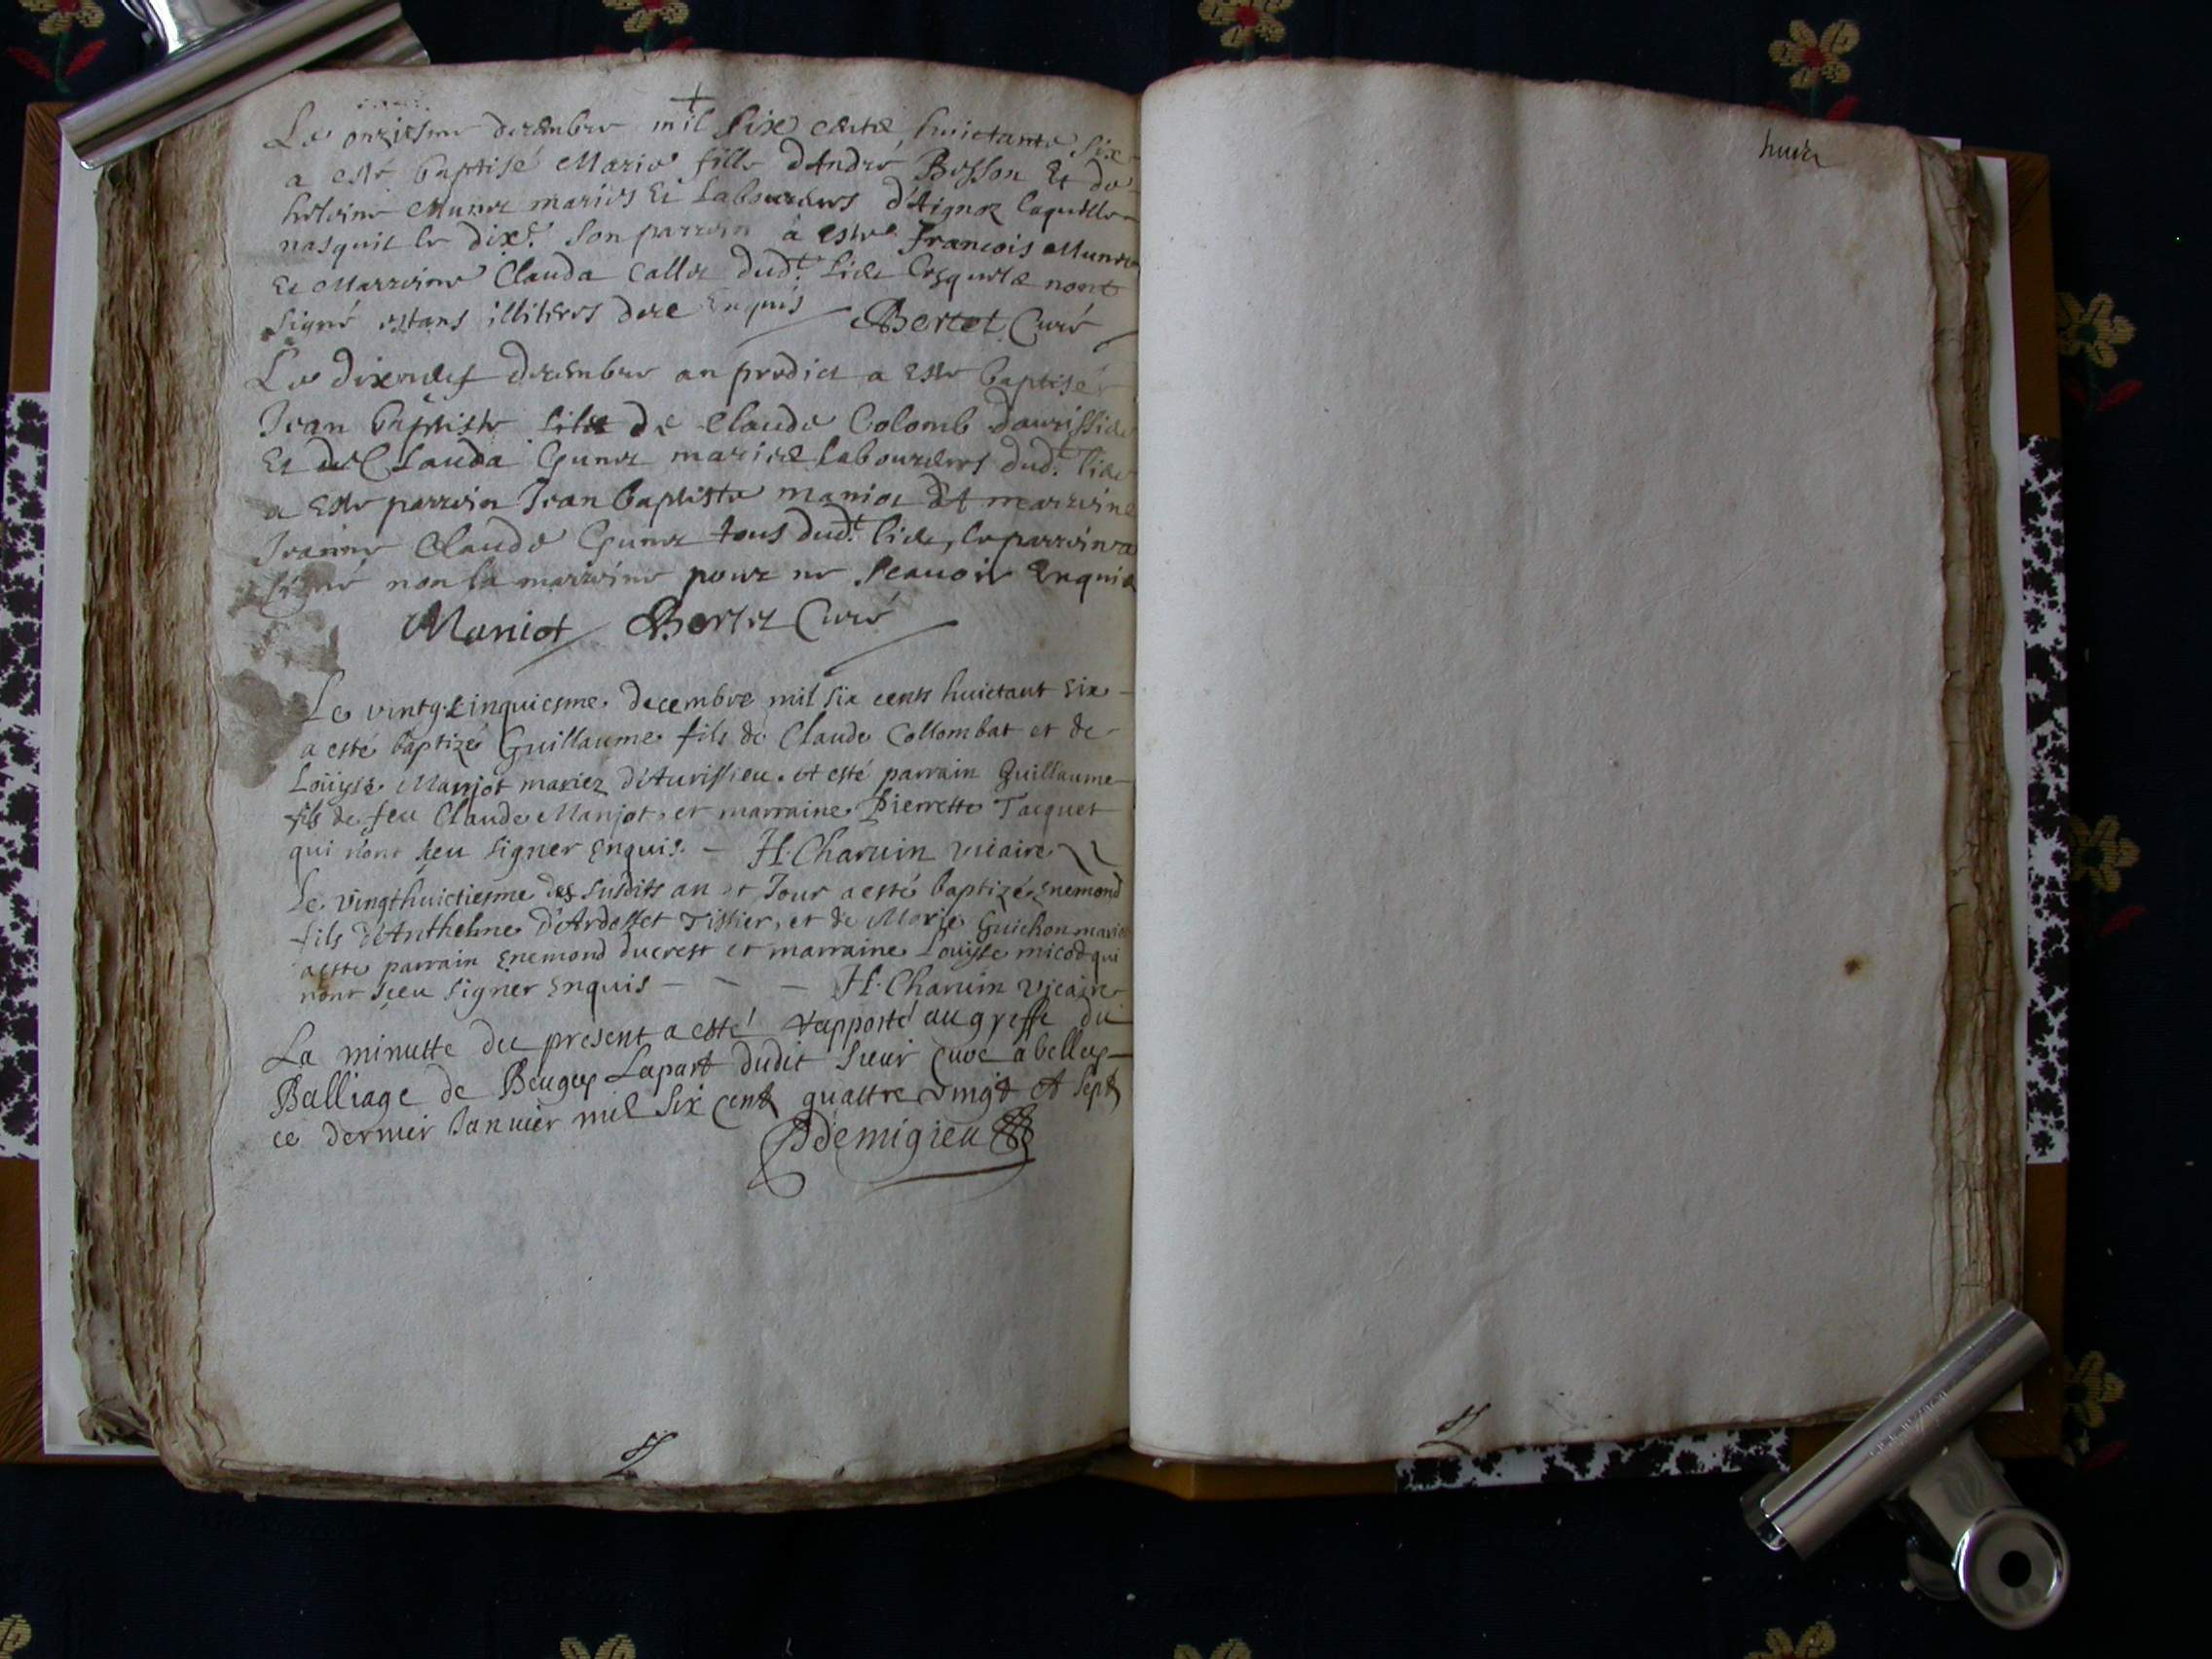 Le onziesme decembre mil six cents huictante six
a esté baptisé Marie fille d'André Bosson et de
Munet mariés et laboureurs d'Aignoz laquelle
nasquit le dixe. Son parrein a esté Francois Munet
et Marreine Clauda Callet dudt. lieu lesquels nont
signé estans illiteres de ce enquis Bertet Curé
Le dixneuf decembre an predict a esté baptisé
Jean baptiste fils de Claude Colomb d'aurissieu
et de Clauda Gunet mariés laboureurs dudt. lieu
a esté parrein Jean baptiste maniot et marreine
Jeanne Claude Gunet tous dudt. lieu, le parrein a
signé non la marreine pour ne scauoir enquis
Maniot Bertet Curé
Le vintg.cinquiesme decembre mil six cents huictant six
a esté baptizé Guillaume fils de Claude Collombat et de
Loüyse Manjot mariez d'Aurissieu. A esté parrain Guillaume
fils de feu Claude Manjot, et marraine Pierrette Tacquet
qui n'ont sceu signer enquis. - H. Charuin vicaire
Le vingthuictiesme des susdits an et Jour a esté baptizé Enemond
fils d'Anthelme D'Ardosset Tissier, et de Marie Guichon mariés
a esté parrain Enemond ducrest et marraine Louyse micod qui
nont sceu signer enquis - - - H. Charuin vicaire
La minutte du present a esté rapporté au greffe du
Balliage de Beugey Lapart dudit sieur Curé a belley
ce dernier Januier mil six cent quattre vingt et sept
Demigieu